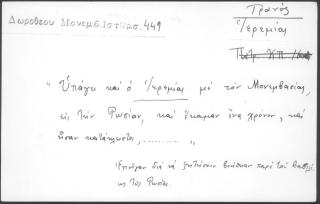 Δωροθεου Μονεμβ. Ιστορ. 449
Τρανός
Ἱερεμίας
"Ὑπάγει καὶ ὁ Ἱερεμίας μὲ τὸν Μονεμβασίας,
εἰς τὴν Ρωσίαν, καὶ ἔκαμαν ἕνα χρόνον, καὶ
ἦσαν κατάκλειστοι, ......... "
Ἐπῆγαν διὰ νὰ ζητήσουν βοήθειαν παρὰ τοῦ βασιλέ
ως τῆς Ρωσίας.